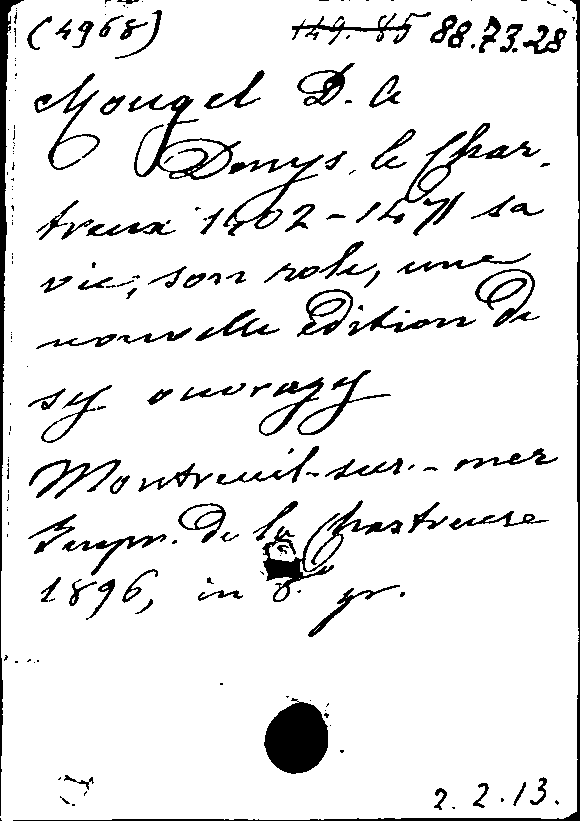 (4968) 149.-85 88.73.28
Mougel D. A
Denys le Char-
treux 1402-1471 sa
vie, son role, une
nouvelle édition de
ses ouvrages
Montreuil-sur-mer
Impr. de la Chartreuse
1896, in 8. gr.
2.2.13.